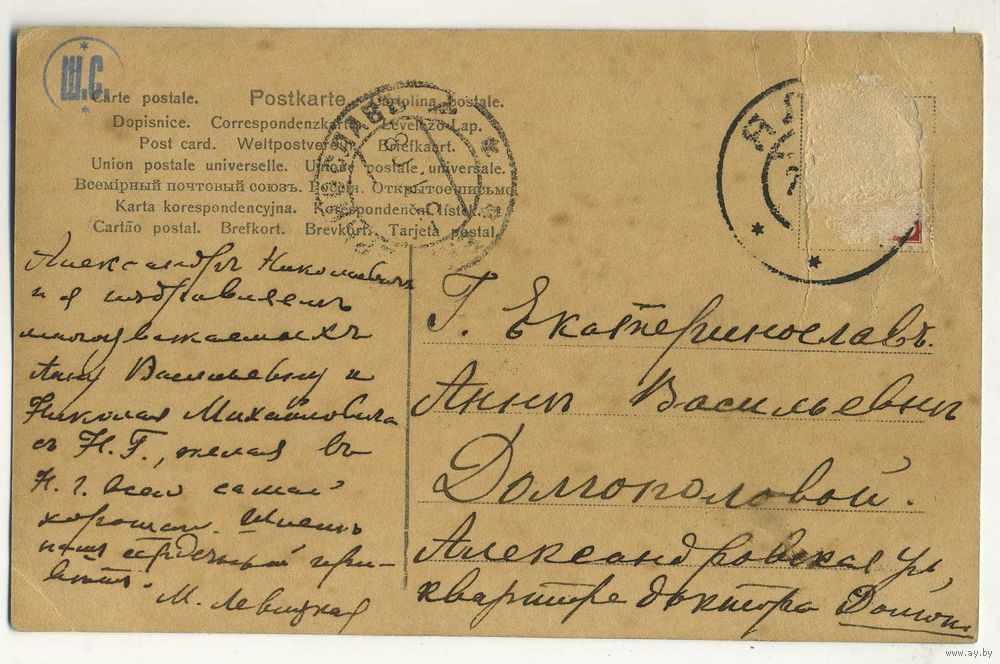 Ш.С.
Carte postale. Postkarte. Cartolina postale.
Dopisnice. Correspondenzkarte. Levelező-Lap.
Post card. Weltpostverein. Briefkaart.
Union postale universelle. Unione postale universale.
Всемірный почтовый союзъ. Россія. Открытое письмо.
Karta korespondencyjna. Korespondenční lístek.
Cartão postal. Brefkort. Brevkort. Tarjeta postal.
Александръ Николаевич
и я поздравляемъ
многоуважаемыхъ
Анну Васильевну и
Николая Михайловича
съ Н. Г., желая въ
Н. г. всего самаго
хорошаго.
сердечный при-
М. Левицкая
Г. Екатеринославъ.
Анны Васильевны
Долгополовой.
Александровская ул,
квартира доктора Долгоп.
www.ay.by